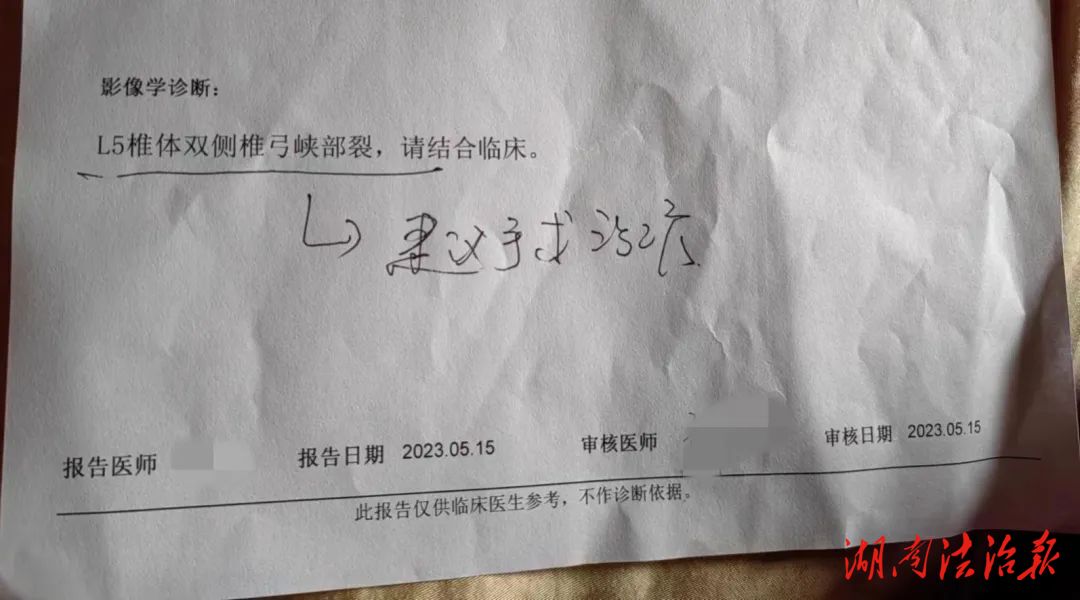 影像学诊断：
L5椎体双侧椎弓峡部裂，请结合临床。
建议手术治疗
报告医师 报告日期 2023.05.15 审核医师 审核日期 2023.05.15
此报告仅供临床医生参考，不作诊断依据。
湖南法治报